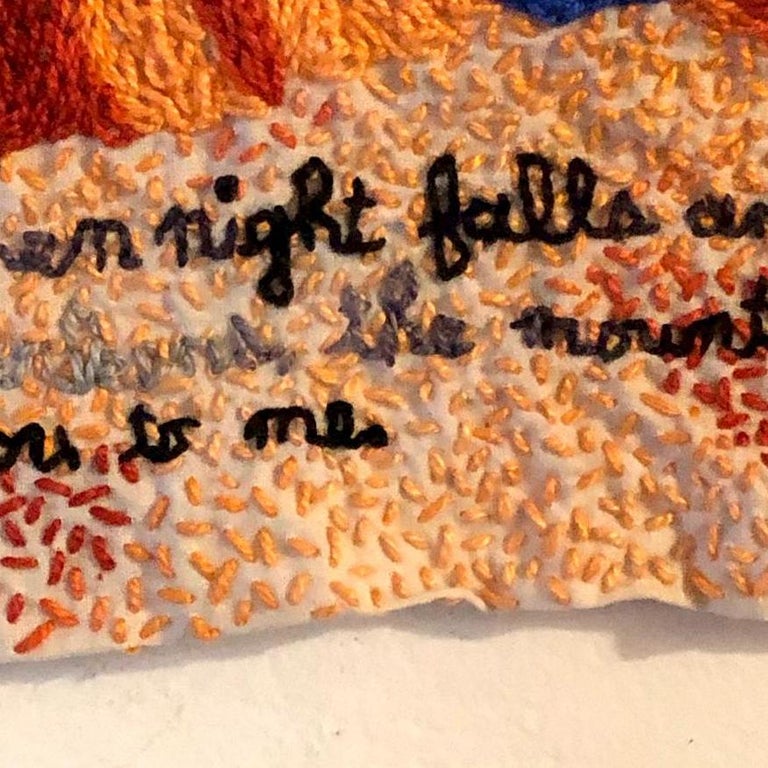 en night falls an
the mount
ou to me